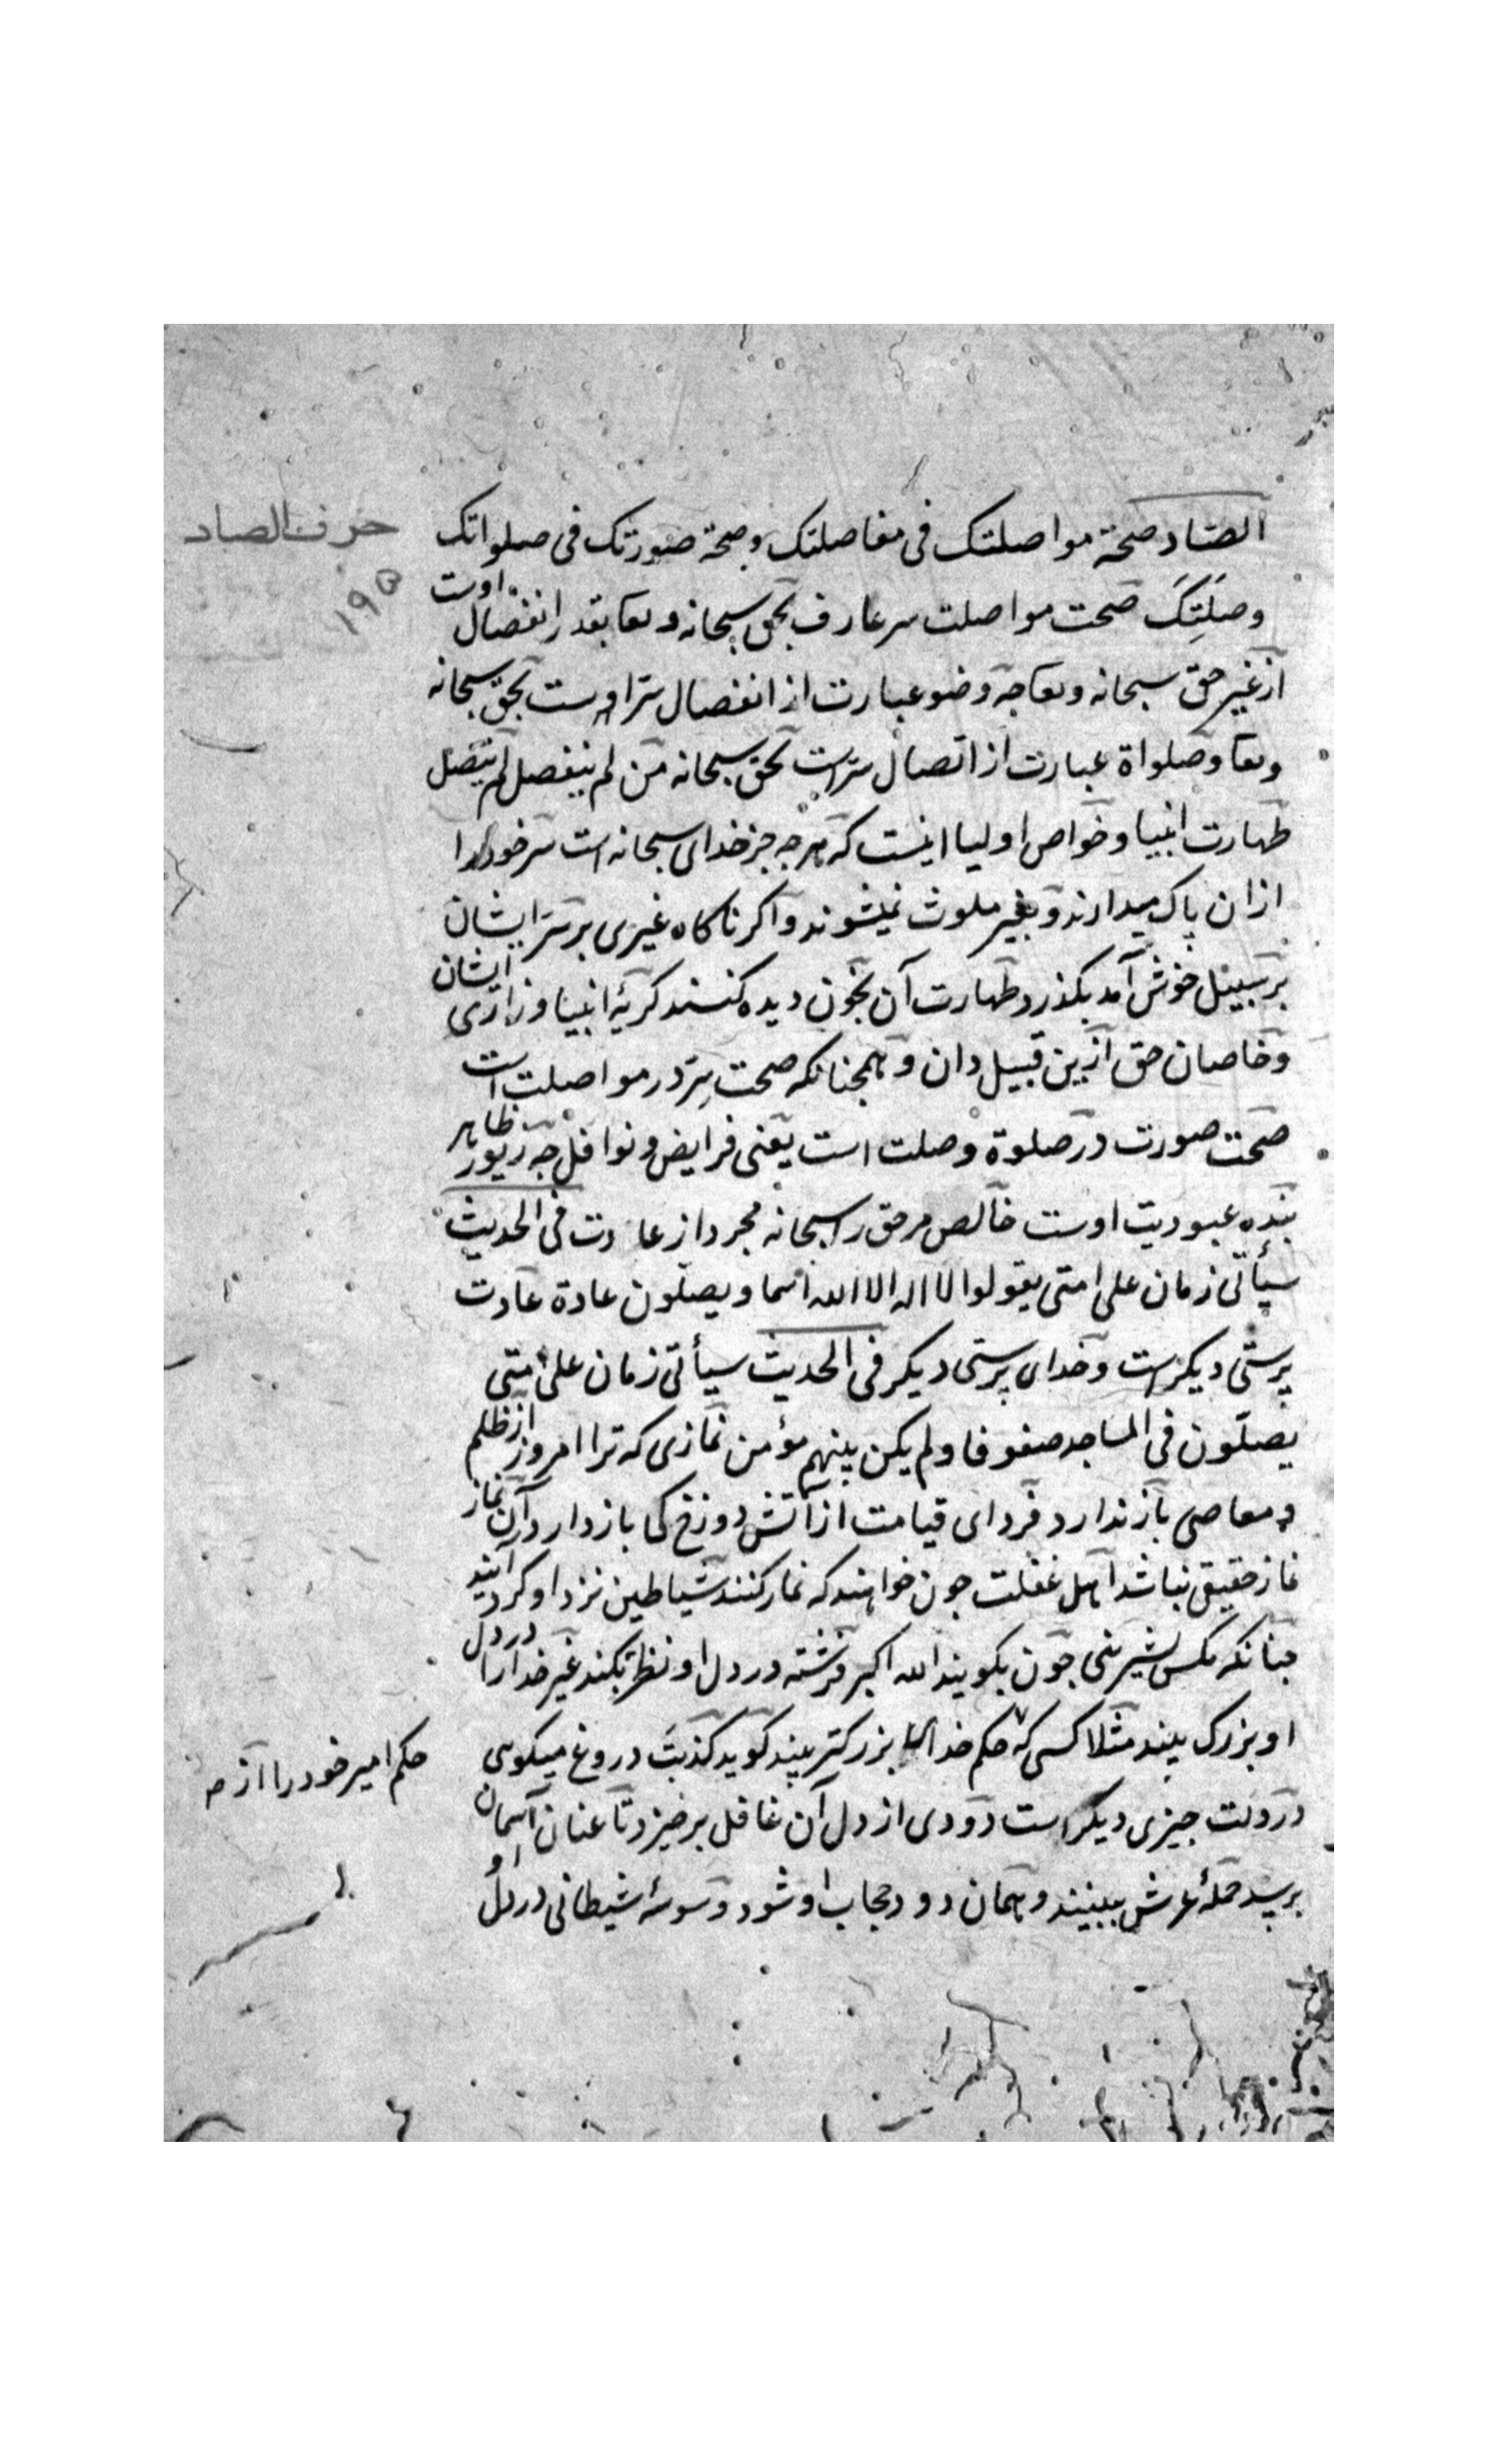 حرف الصاد
۱۹۵
الصاد صحة مواصلتک فی مفاصلتک وصحة صورتک فی صلواتک
وصَلَتِکَ صحت مواصلت سر عارف بحق سبحانه وتعا بقدر انفصال اوست
از غیر حق سبحانه وتعا جه وضو عبارت از انفصال سرّ اوست بحق سبحانه
وتعا وصلواة عبارت از اتصال سرّاست بحق سبحانه من لم ینفصل لم یتصل
طهارت انبیا وخواص اولیا اینست که هرجه جز خدای سبحانه است سر خود را
ازان پاک میدارند وبغیر ملوث نمیشوند واکر ناکاه غیری بر سرّ ایشان
بر سبیل خوش آمد بکذرد طهارت آن بخون دیده کنند کریهٔ انبیا وزاری ایشان
وخاصان حق ازین قبیل دان وهمجنانکه صحت سِرّ در مواصلت است
صحت صورت در صلوة وصلت است یعنی فرایض ونوافل جه زیور ظاهر
بنده عبودیت اوست خالص مر حق را سبحانه مجرد از عادت فی الحدیث
سیأتی زمان علی امتی یقولوا لا اله الا الله اسما ویصلّون عادة عادت
پرستی دیکرست وخدای پرستی دیکر فی الحدیث سیأتی زمان علی امتی
یصلّون فی المساجد صفوفا ولم یکن بینهم مؤمن نمازی که ترا امروز از ظلم
ومعاصی باز ندارد فردای قیامت از آتش دوزخ کی باز دارد آن نماز
نماز حقیقی نباشد اهل غفلت جون خواهند که نماز کنند شیاطین نزد او کرد آیند
جنانکه مکس بشیرینی جون بکویند الله اکبر فرشته در دل او نظر بکند غیر خدا را در دل
او بزرک بیند مثلا کسی که حکم خدا بزرکتر بیند کوید کذبتَ دروغ میکوی
حکم امیر خود را از
در دلت جیزی دیکر است دودی از دل آن غافل بر خیزد تا عنان آسمان
برسد حملهٔ عرش ببینند وهمان دود حجاب او شود وسوسهٔ شیطانی در دل او